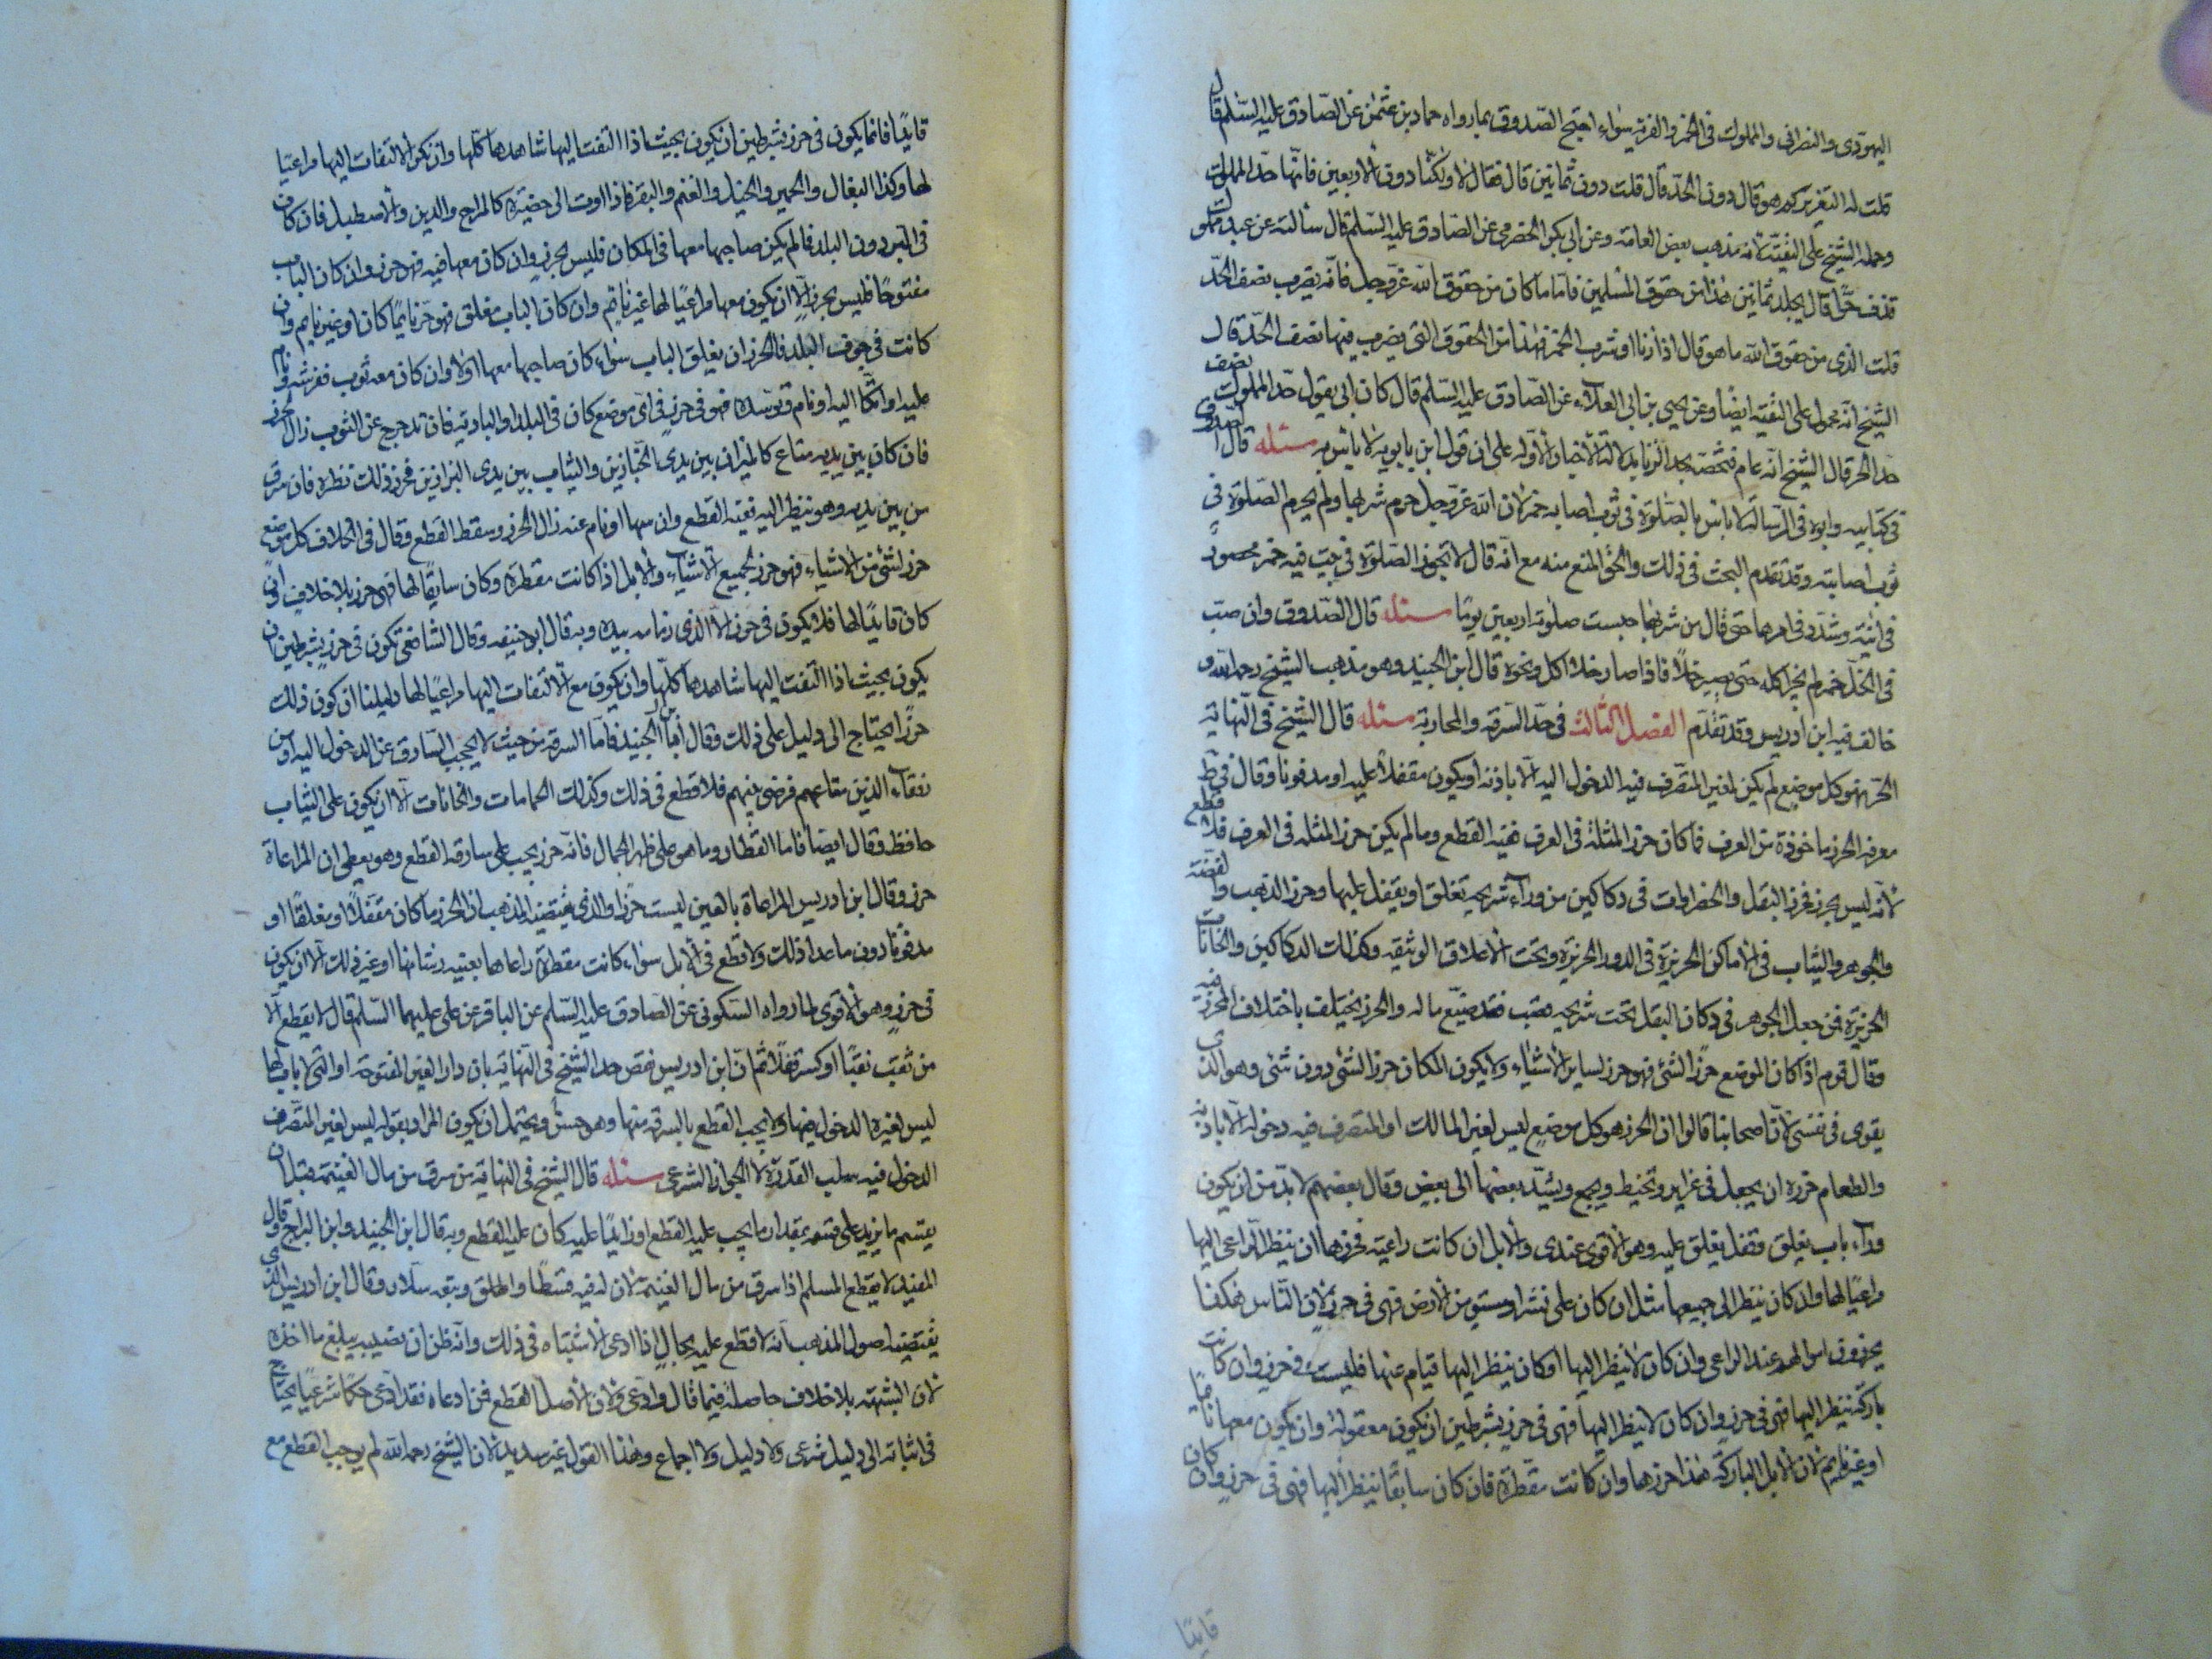 اليهودى والنصرانى والمملوك فى الخمر والفرية سواء احتج الصدوق بما رواه حماد بن عثمن عن الصادق عليه السلم قال
قلت له التعزير كم هو قال دون الحد قال قلت دون ثمانين قال فقال لا ولكنها دون الاربعين فانها حد المملوك
وحمله الشيخ على التقية لانه مذهب بعض العامة وعن ابى بكر الحضرمى عن الصادق عليه السلم قال سألته عن عبد مملوك
قذف حرا قال يجلد ثمانين هذا من حقوق المسلمين فاما ما كان من حقوق الله عز وجل فانه يضرب نصف الحد
قلت الذى من حقوق الله ما هو قال اذا زنا او شرب الخمر فهذا من الحقوق التى يضرب فيها نصف الحد قال
الشيخ انه محمول على التقية ايضا وعن يحيى بن ابى العلاء عن الصادق عليه السلم قال كان ابى يقول حد المملوك نصف
حد الحر قال الشيخ انه عام فنخصه بحد الزنا بدلالة الاخبار الاولة على ان قول ابن بابويه لا باس به مسئله قال الصدوق
فى كتابيه وابوه فى الرسالة لا باس بالصلوة فى ثوب اصابه خمر لان الله عز وجل حرم شربها ولم يحرم الصلوة فى
ثوب اصابته وقد تقدم البحث فى ذلك والحق المنع منه مع انه قال لا تجوز الصلوة فى بيت فيه خمر محصور
فى انية وشدد فى امرها حتى قال من شربها حبست صلوته اربعين يوما مسئله قال الصدوق وان صب
فى الخل خمر لم يجز اكله حتى يصير خلا فاذا صار خلا اكل ونحوه قال ابن الجنيد وهو مذهب الشيخ رحمه الله و
خالف فيه ابن ادريس وقد تقدم الفصل الثالث فى حد السرقه والمحاربة مسئله قال الشيخ فى النهاية
الحرز هو كل موضع لم يكن لغير المتصرف فيه الدخول اليه الا باذنه او يكون مقفلا عليه او مدفونا وقال فى ط
معرفة الحرز ماخوذة من العرف فما كان حرزا لمثله فى العرف ففيه القطع وما لم يكن حرزا لمثله فى العرف فلا قطع
لانه ليس بحرز فحرز البقل والخضراوات فى دكاكين من وراء شريجة تغلق او يقفل عليها وحرز الذهب والفضة
والجوهر والثياب فى الاماكن الحريزة فى الدور الحريزة وتحت الاغلاق الوثيقه وكذلك الدكاكين والخانات
الحريزة فمن جعل الجوهر فى دكان البقل تحت شريجة قصب فقد ضيع ماله والحرز يختلف باختلاف المحرز فيه
وقال قوم اذا كان الموضع حرزا لشئ فهو حرز لساير الاشياء ولا يكون المكان حرزا لشئ دون شئ وهو الذى
يقوى فى نفسى لان اصحابنا قالوا ان الحرز هو كل موضع ليس لغير المالك او المتصرف فيه دخوله الا باذنه
والطعام حرزه ان يجعل فى غراير وتخيط ويجمع ويشد بعضها الى بعض وقال بعضهم لا بد من ان يكون
وراء باب يغلق وقفل يغلق عليه وهو الاقوى عندى والابل ان كانت راعية فحرزها ان ينظر الراعى اليها
مراعيا لها وان كان ينظر الى جميعها مثل ان كان على نشز او مستو من الارض فهى فى حرز لان الناس هكذا
يحرزون اموالهم عند الراعى وان كان لا ينظر اليها او كان ينظر اليها فنام عنها فليست فى حرز وان كانت
باركة ينظر اليها فهى فى حرز وان كان لا ينظر اليها فهى فى حرز بشرطين ان يكون معقولة وان يكون معها نائما
او غير نايم لان الابل الباركة هكذا حرزها وان كانت مقطرة فان كان سايقا ينظر اليها فهى فى حرز وان كان
قايدا
قايدا فانما يكون فى حرز بشرطين ان يكون بحيث اذا التفت اليها شاهدها كلها وان يكثر الالتفات اليها مراعيا
لها وكذا البغال والحمير والخيل والغنم والبقر فاذا اوت الى حضيرة كالمراح والدير والاصطبل فان كان
فى البر دون البلد فما لم يكن صاحبها معها فى المكان فليس بحرز وان كان معها فيه فهو حرز وان كان الباب
مفتوحا فليس بحرز الا ان يكون معها مراعيا لها غير نايم وان كان الباب مغلق فهو حرز نايما كان او غير نايم وان
كانت فى جوف البلد فالحرز ان يغلق الباب سواء كان صاحبها معها او لا وان كان معه ثوب ففرشه ونام
عليه او اتكا اليه او نام وتوسده فهو فى حرز فى اى موضع كان فى البلد او البادية فان تدحرج عن الثوب زال الحرز
فان كان بين يديه متاع كالميزان بين يدى الخبازين والثياب بين يدى البزازين فحرز ذلك نظره فان سرق
من بين يديه وهو ينظر اليه ففيه القطع وان سها او نام عنه زال الحرز وسقط القطع وقال فى الخلاف كل موضع
حرز لشئ من الاشياء فهو حرز لجميع الاشياء والابل اذا كانت مقطرة وكان سايقا لها فهى حرز بلا خلاف وان
كان قايدا لها فلا يكون فى حرز الا الذى زمامه بيده وبه قال ابو حنيفه وقال الشافعى تكون فى حرز بشرطين ان
يكون بحيث اذا التفت اليها شاهدها كلها وان يكون مع الالتفات اليها مراعيا لها دليلنا ان كون ذلك
حرزا يحتاج الى دليل على ذلك وقال ابن الجنيد فاما السرقة من حيث لا يحجب السارق عن الدخول اليه او من
رفقاء الذين متاعهم فرضى بينهم فلا قطع فى ذلك وكذلك الحمامات والخانات الا ان يكون على الثياب
حافظ وقال ايضا فاما القطار وما هو على ظهر الجمال فانه حرز يجب على سارقه القطع وهو يعطى ان المراعاة
حرز وقال ابن ادريس المراعاة بالعين ليست حرزا والذى يقتضيه المذهب ان الحرز ما كان مقفلا او مغلقا او
مدفونا دون ماعدا ذلك ولا قطع فى الابل سواء كانت مقطرة راعاها بعينه زمامها او غير ذلك الا ان يكون
فى حرز وهو الاقوى لما رواه السكونى عن الصادق عليه السلم عن الباقر عن على عليهما السلم قال لا يقطع الا
من نقب نقبا او كسر قفلا ثم ان ابن ادريس نقض حد الشيخ فى النهاية بان دار الغير المفتوحة او التى لا باب لها
ليس لغيره الدخول فيها ولا يجب القطع بالسرقة منها وهو حسن ويحتمل ان يكون المراد بقوله ليس لغير المتصرف
الدخول فيه سلب القدرة لا الجواز الشرعى مسئله قال الشيخ فى النهاية من سرق من مال الغنيمة قبل ان
يقسم ما يزيد على قسمه بمقدار ما يجب عليه القطع او زايدا عليه كان عليه القطع وبه قال ابن الجنيد وابن البراج وقال
المفيد لا يقطع المسلم اذا سرق من مال الغنيمة لان له فيه قسطا واطلق وتبعه سلار وقال ابن ادريس الذى
يقتضيه اصول المذهب انه لا قطع عليه بحال اذا ادعى الاشتباه فى ذلك وانه ظن ان نصيبه يبلغ ما اخذه
لان الشبهة بلا خلاف حاصلة فيما قال وادعى ولان الاصل لا قطع فمن ادعاه فقد ادعى حكما شرعيا يحتاج
فى اثباته الى دليل شرعى ولا دليل ولا اجماع وهذا القول غير سديد لان الشيخ رحمه الله لم يوجب القطع مع